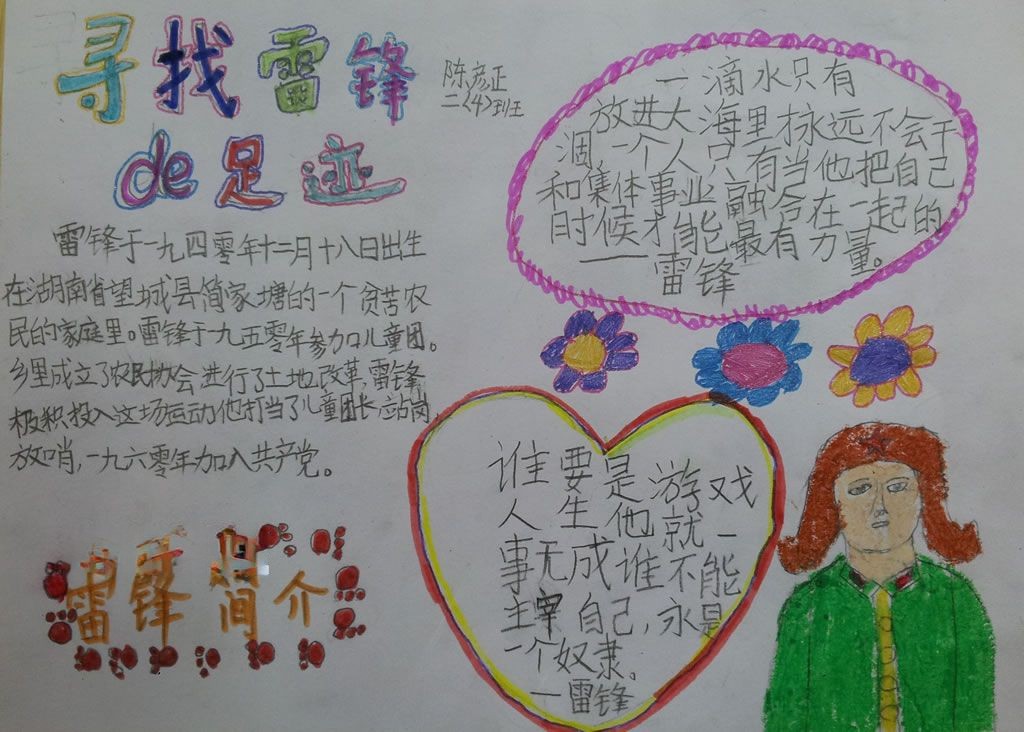 寻找雷锋
de足迹
陈彦正
二(4)班
一滴水只有
放进大海里才永远不会干
涸一个人只有当他把自己
和集体事业融合在一起的
时候才能最有力量。
——雷锋
雷锋于一九四零年十二月十八日出生
在湖南省望城县简家塘的一个贫苦农
民的家庭里。雷锋于一九五零年参加儿童团。
乡里成立了农民协会,进行了土地改革,雷锋
极积投入这场运动他打当了儿童团长,站岗
放哨,一九六零年加入共产党。
谁要是游戏
人生他就一
事无成谁不能
主宰自己,永是
一个奴隶。
一雷锋
雷锋简介